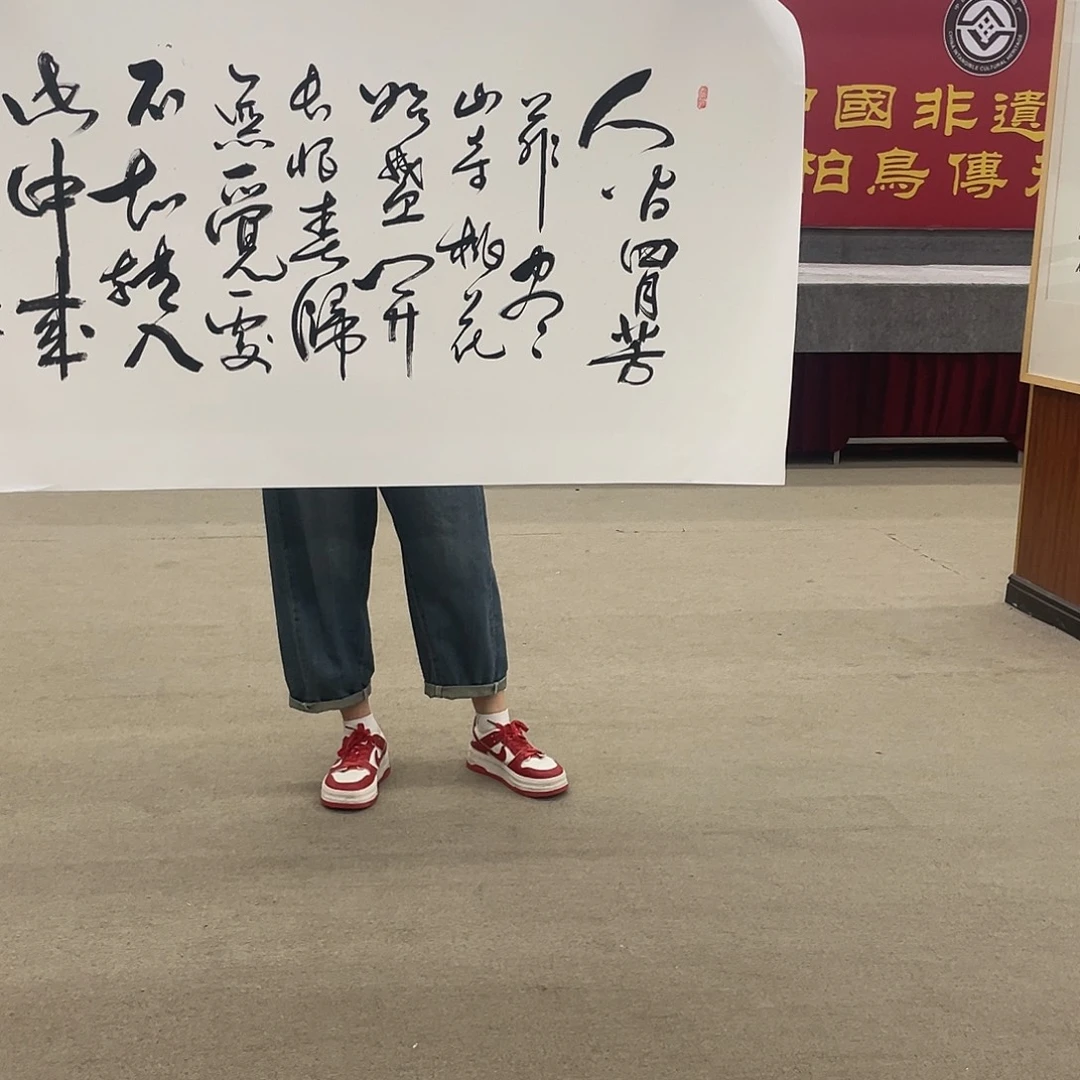 人間四月芳
菲盡
山寺桃花
始盛開
長恨春歸
無覓處
不知轉入
此中來
CHINA INTANGIBLE CULTURAL HERITAGE
中國非遺
柏鳥傳